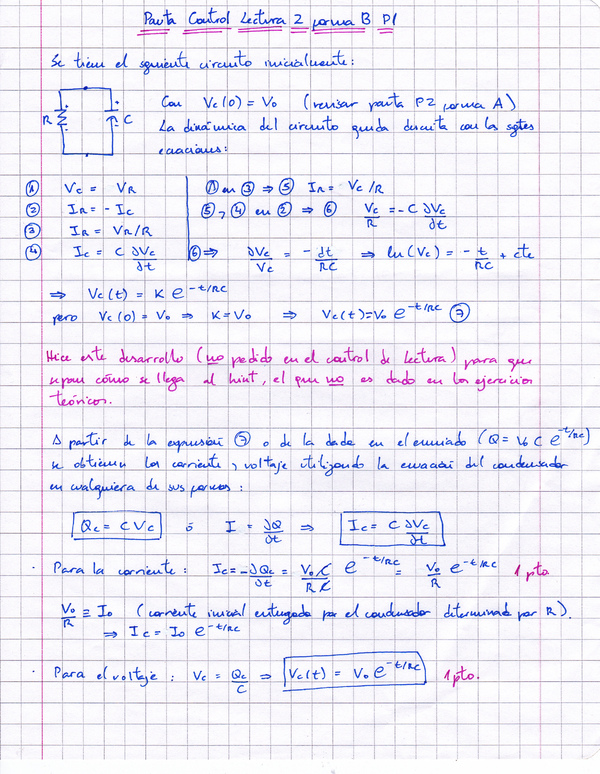 Pauta Control Lectura 2 forma B P1
Se tiene el siguiente circuito inicialmente:
R C
Con Vc(0) = Vo (revisar pauta P2 forma A)
La dinámica del circuito queda descrita con las sgtes
ecuaciones:
① Vc = VR
② IR = - Ic
③ IR = VR/R
④ Ic = C ∂Vc/∂t
① en ③ ⇒ ⑤ IR = Vc/R
⑤, ④ en ② ⇒ ⑥ Vc/R = -C ∂Vc/∂t
⑥ ⇒ ∂Vc/Vc = - ∂t/RC ⇒ ln(Vc) = - t/RC + cte
⇒ Vc(t) = K e^-t/RC
pero Vc(0) = Vo ⇒ K = Vo ⇒ Vc(t) = Vo e^-t/RC ⑦
Hice este desarrollo (no pedido en el control de lectura) para que
sepan cómo se llega al hint, el que no es dado en los ejercicios
teóricos.
A partir de la expresión ⑦ o de la dada en el enunciado (Q = Vo C e^-t/RC)
se obtienen las corriente y voltaje utilizando la ecuación del condensador
en cualquiera de sus formas:
Qc = C Vc ó I = ∂Q/∂t ⇒ Ic = C ∂Vc/∂t
· Para la corriente: Ic = -∂Qc/∂t = Vo C/R C e^-t/RC = Vo/R e^-t/RC 1 pto
Vo/R ≡ Io (corriente inicial entregada por el condensador determinada por R).
⇒ Ic = Io e^-t/RC
· Para el voltaje: Vc = Qc/C ⇒ Vc(t) = Vo e^-t/RC 1 pto.